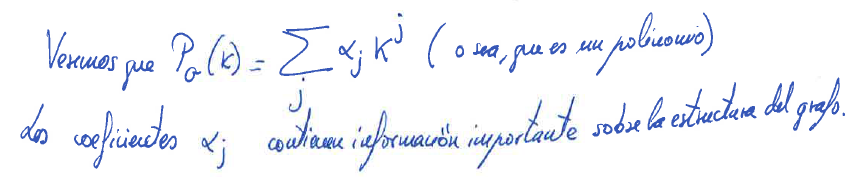 Veremos que P_G(k) = ∑_j α_j k^j ( o sea, que es un polinomio)
Los coeficientes α_j contienen información importante sobre la estructura del grafo.